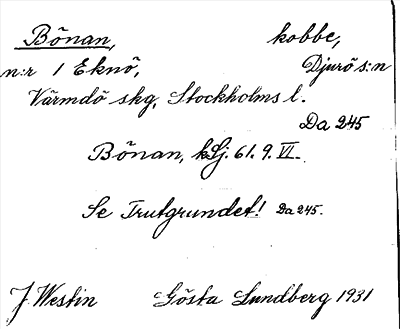 Bönan, kobbe,
n:r 1 Eknö, Djurö s:n
Värmdö skg, Stockholms l.
Da 245
Bönan, kSj. 61. 9. VI.
Se Trutgrundet! Da 245.
J. Westin Gösta Lundberg 1931